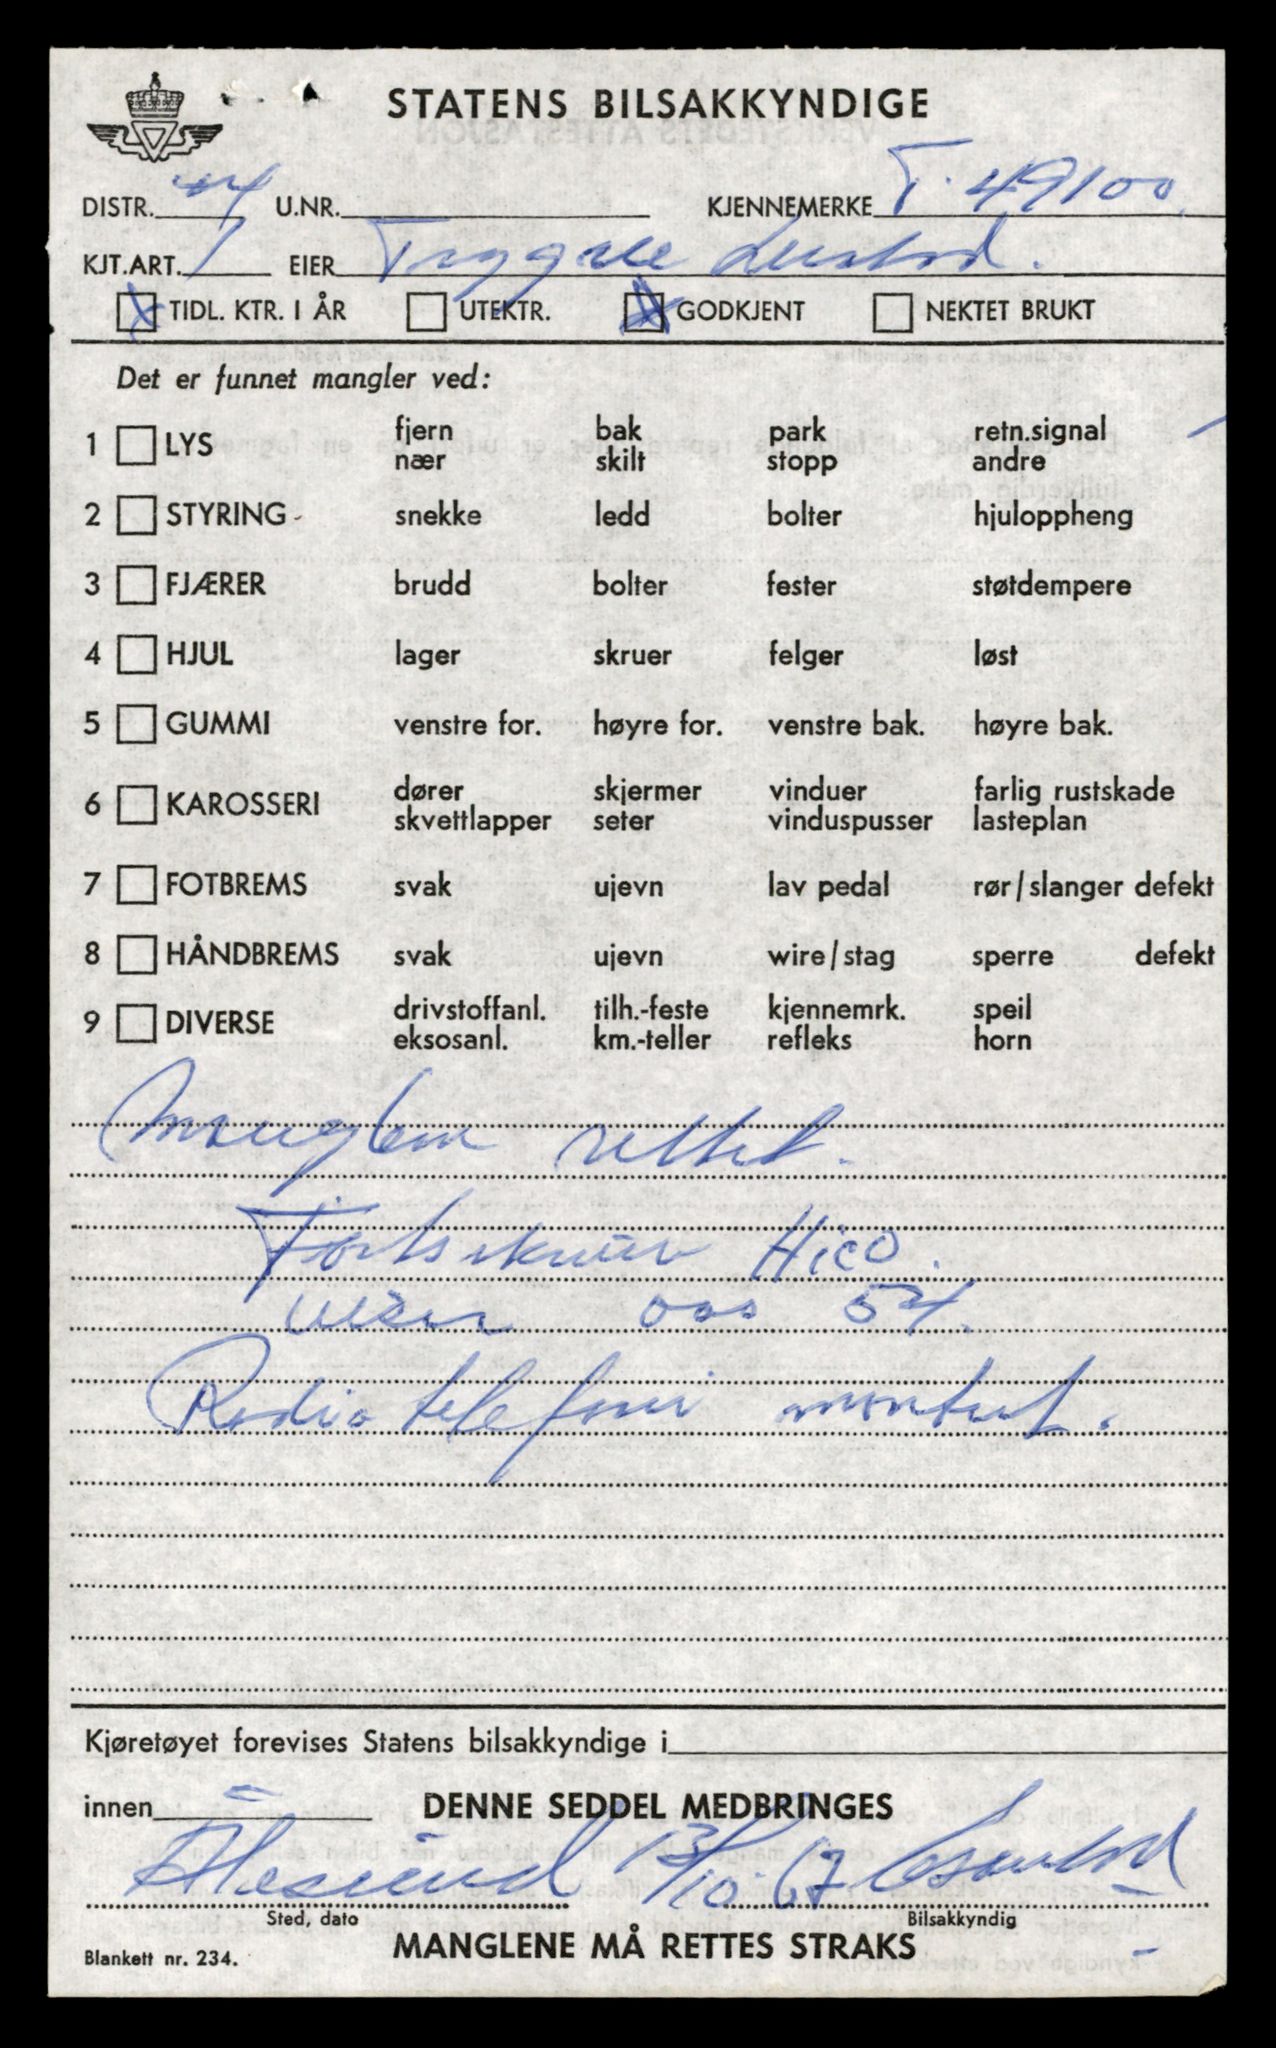 STATENS BILSAKKYNDIGE
DISTR. 44 U.NR. KJENNEMERKE T. 49100
KJT.ART. 1 EIER Tryggve
X TIDL. KTR. I ÅR UTEKTR. X GODKJENT NEKTET BRUKT
Det er funnet mangler ved:
1 LYS fjern bak park retn.signal
nær skilt stopp andre
2 STYRING snekke ledd bolter hjuloppheng
3 FJÆRER brudd bolter fester støtdempere
4 HJUL lager skruer felger løst
5 GUMMI venstre for. høyre for. venstre bak. høyre bak.
6 KAROSSERI dører skjermer vinduer farlig rustskade
skvettlapper seter vinduspusser lasteplan
7 FOTBREMS svak ujevn lav pedal rør/slanger defekt
8 HÅNDBREMS svak ujevn wire/stag sperre defekt
9 DIVERSE drivstoffanl. tilh.-feste kjennemrk. speil
eksosanl. km.-teller refleks horn
rettet.
Hico.
54.
Radiotelefoni montert.
Kjøretøyet forevises Statens bilsakkyndige i
innen DENNE SEDDEL MEDBRINGES
Ålesund 13/10-67
Sted, dato Bilsakkyndig
Blankett nr. 234. MANGLENE MÅ RETTES STRAKS